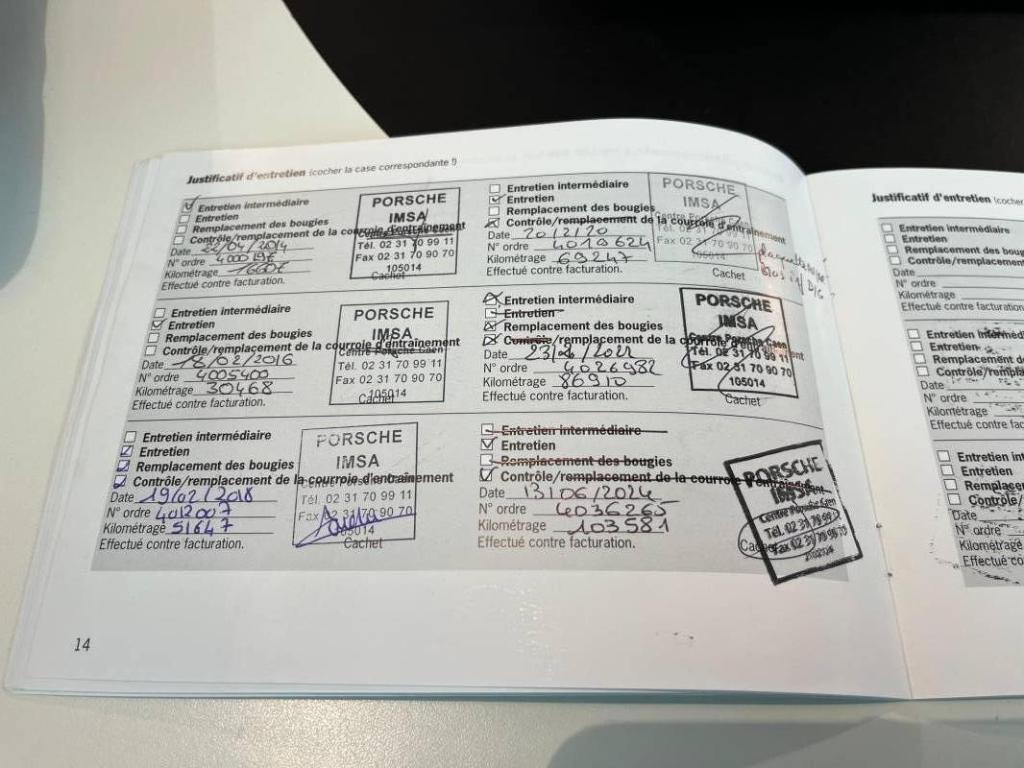 Justificatif d'entretien (cocher la case correspondante !)
Entretien intermédiaire
Entretien
Remplacement des bougies
Contrôle/remplacement de la courroie d'entraînement
Date /04/2014
N° ordre
Kilométrage
Effectué contre facturation.
PORSCHE
IMSA
Tél. 02 31 70 99 11
Fax 02 31 70 90 70
105014
Cachet
Entretien intermédiaire
Entretien
Remplacement des bougies
Contrôle/remplacement de la courroie d'entraînement
Date 18/02/2016
N° ordre 4005400
Kilométrage 30468
Effectué contre facturation.
PORSCHE
IMSA
Centre Porsche Caen
Tél. 02 31 70 99 11
Fax 02 31 70 90 70
105014
Cachet
Entretien intermédiaire
Entretien
Remplacement des bougies
Contrôle/remplacement de la courroie d'entraînement
Date 19/02/2018
N° ordre 4012007
Kilométrage 51647
Effectué contre facturation.
PORSCHE
IMSA
Centre Porsche Caen
Tél. 02 31 70 99 11
Fax 02 31 70 90 70
Cachet
Entretien intermédiaire
Entretien
Remplacement des bougies
Contrôle/remplacement de la courroie d'entraînement
Date 20/2/20
N° ordre 4019624
Kilométrage 69247
Effectué contre facturation.
PORSCHE
IMSA
Centre Porsche Caen
Fax 02 31 70 90 70
105014
Cachet
Entretien intermédiaire
Entretien
Remplacement des bougies
Contrôle/remplacement de la courroie d'entraînement
Date 23/06/2021
N° ordre 4026982
Kilométrage 86910
Effectué contre facturation.
PORSCHE
IMSA
Centre Porsche Caen
Tél. 02 31 70 99 11
Fax 02 31 70 90 70
105014
Cachet
Entretien intermédiaire
Entretien
Remplacement des bougies
Contrôle/remplacement de la courroie d'entraînement
Date 13/06/2024
N° ordre 4036265
Kilométrage 103581
Effectué contre facturation.
PORSCHE
IMSA
Centre Porsche Caen
Tél. 02 31 70 99 11
Fax 02 31 70 90 70
14
Justificatif d'entretien (cocher
Entretien intermédiaire
Entretien
Remplacement des boug
Contrôle/remplacement
Date
N° ordre
Kilométrage
Effectué contre facturation
Entretien intermédi
Entretien
Remplacement d
Contrôle/rempla
Date
N° ordre
Kilométrage
Effectué contre fact
Entretien int
Entretien
Remplace
Contrôle/
Date
N° ordre
Kilométrage
Effectué co